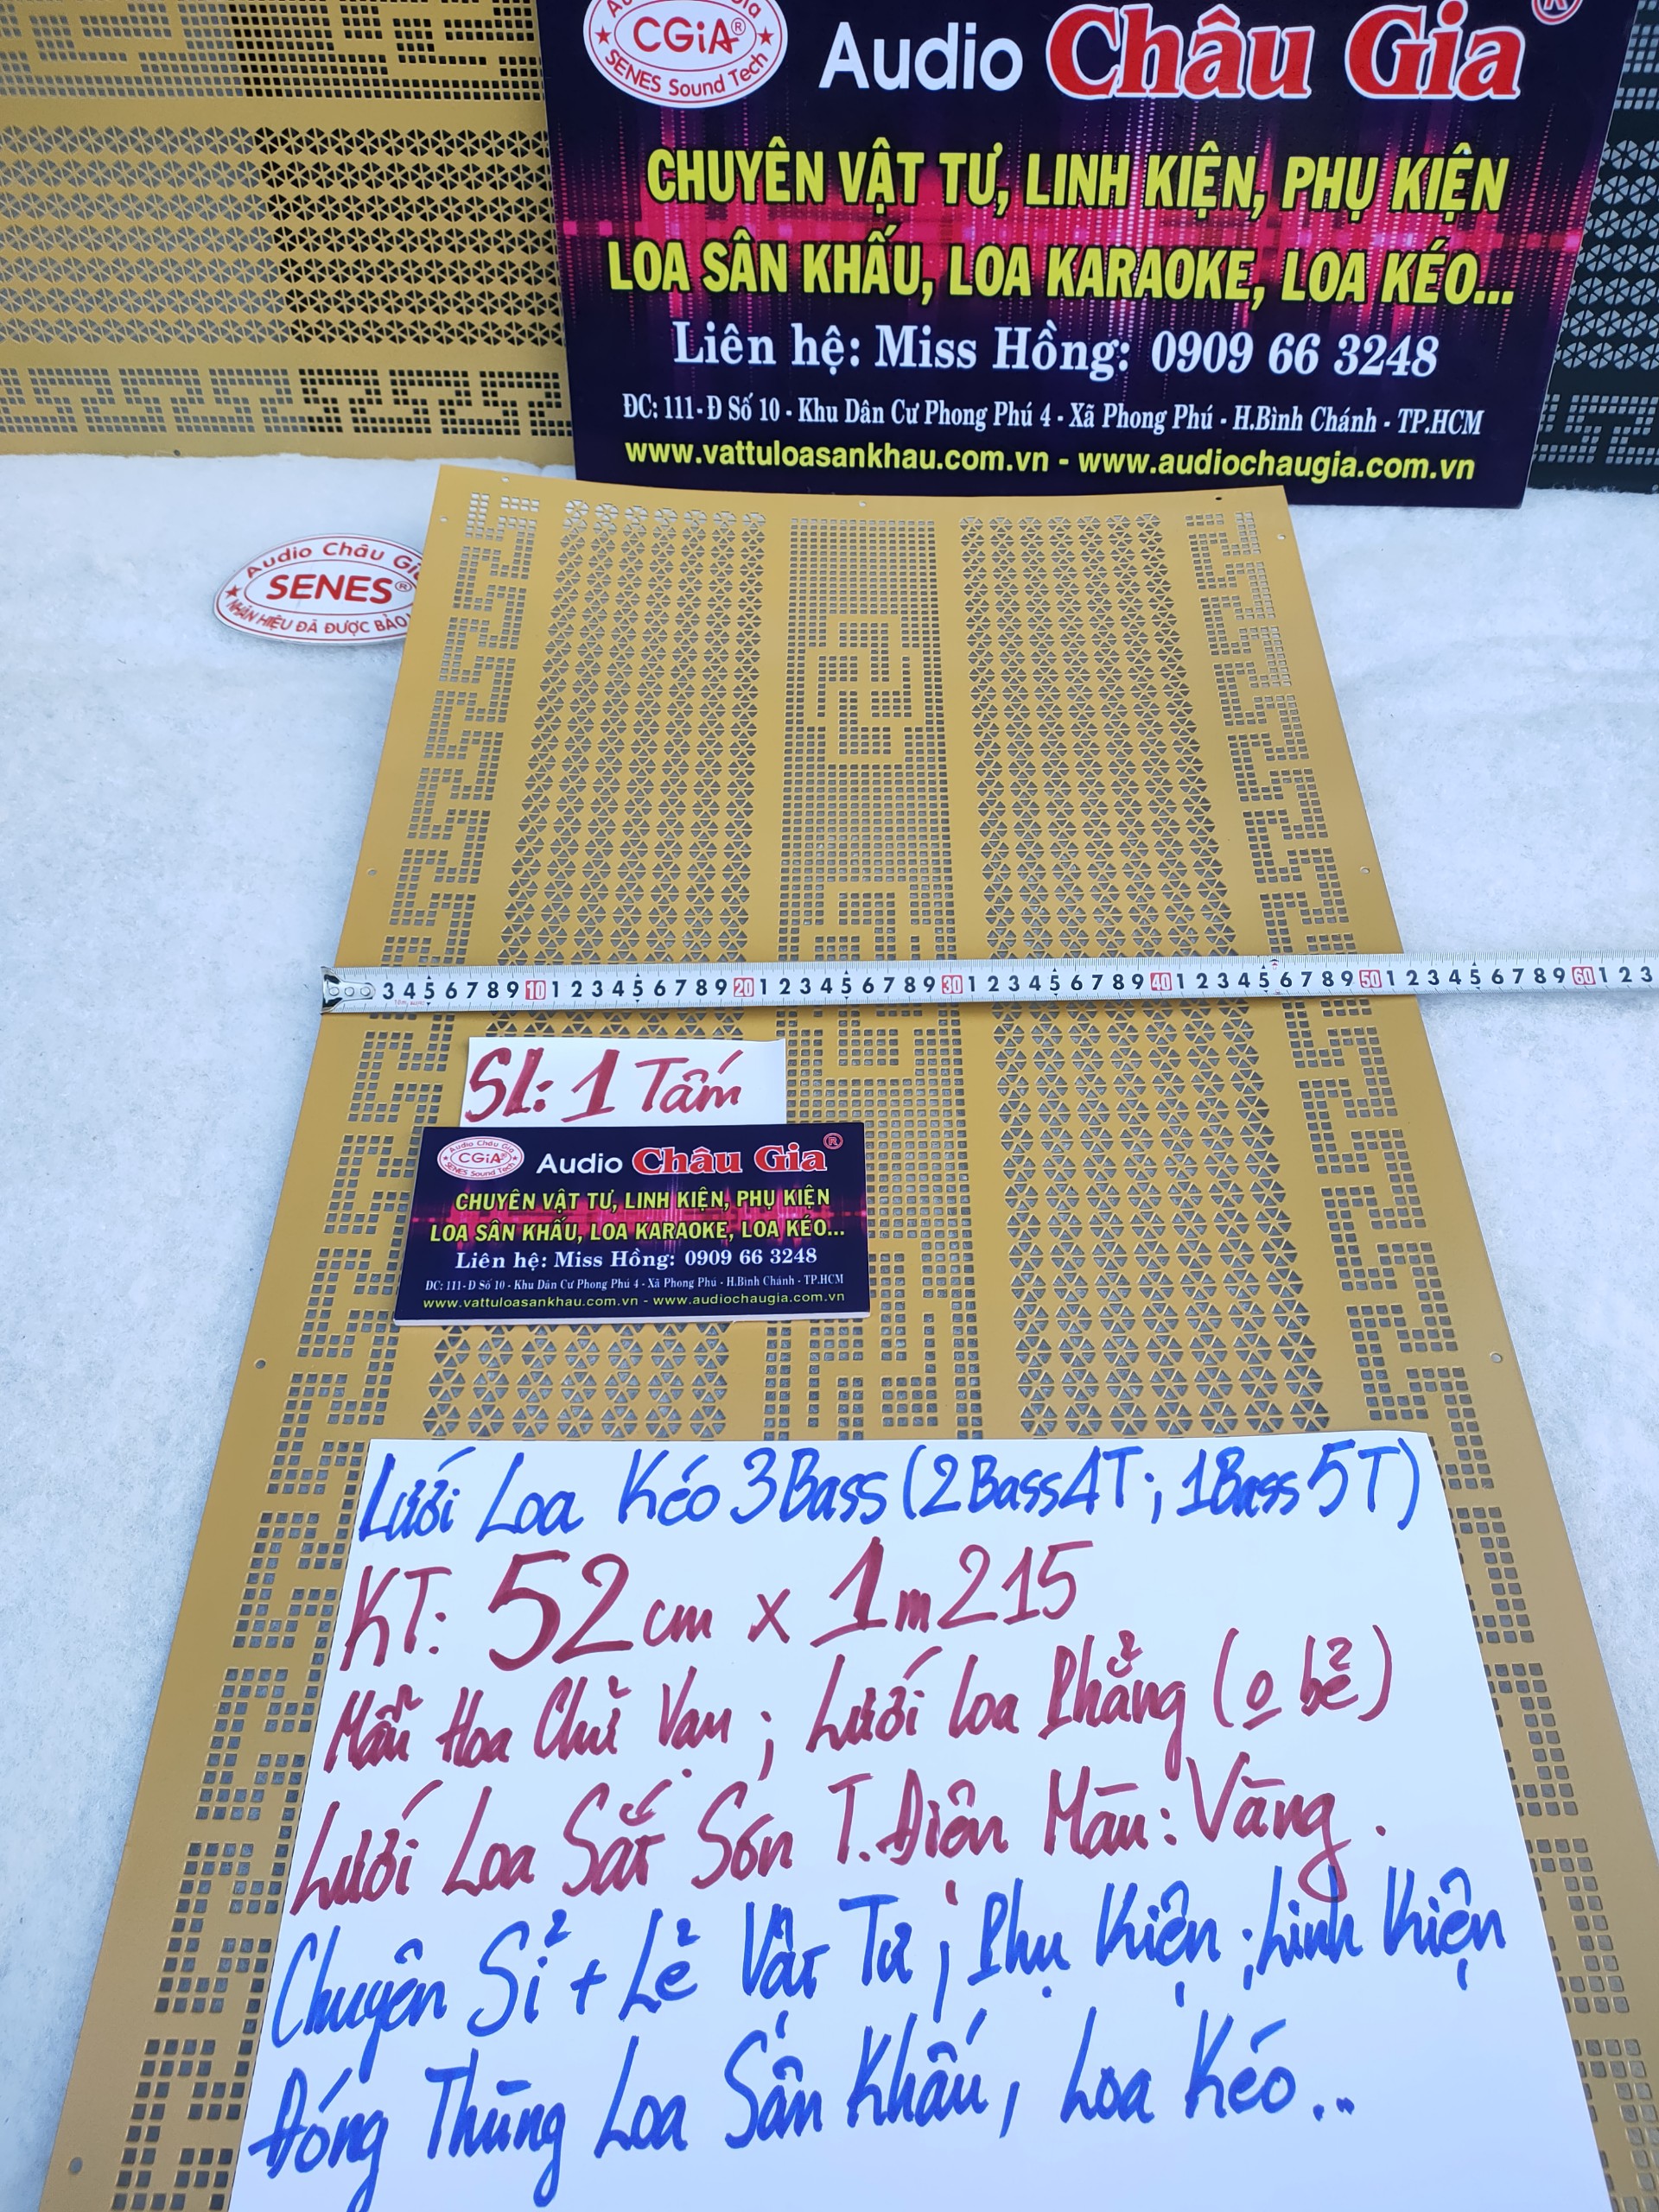 Audio Châu Gia
CGiA®
SENES Sound Tech
Audio Châu Gia®
CHUYÊN VẬT TƯ, LINH KIỆN, PHỤ KIỆN
LOA SÂN KHẤU, LOA KARAOKE, LOA KÉO...
Liên hệ: Miss Hồng: 0909 66 3248
ĐC: 111-Đ Số 10 - Khu Dân Cư Phong Phú 4 - Xã Phong Phú - H.Bình Chánh - TP.HCM
www.vattuloasankhau.com.vn - www.audiochaugia.com.vn
Audio Châu Gi
SENES®
NHÃN HIỆU ĐÃ ĐƯỢC BẢO
3 4 5 6 7 8 9 10 1 2 3 4 5 6 7 8 9 20 1 2 3 4 5 6 7 8 9 30 1 2 3 4 5 6 7 8 9 40 1 2 3 4 5 6 7 8 9 50 1 2 3 4 5 6 7 8 9 60 1 2 3
SL: 1 Tấm
Audio Châu Gia
CGiA®
SENES Sound Tech
Audio Châu Gia®
CHUYÊN VẬT TƯ, LINH KIỆN, PHỤ KIỆN
LOA SÂN KHẤU, LOA KARAOKE, LOA KÉO...
Liên hệ: Miss Hồng: 0909 66 3248
ĐC: 111-Đ Số 10 - Khu Dân Cư Phong Phú 4 - Xã Phong Phú - H.Bình Chánh - TP.HCM
www.vattuloasankhau.com.vn - www.audiochaugia.com.vn
Lưới Loa Kéo 3Bass (2Bass4T; 1Bass5T)
KT: 52cm x 1m215
Mẫu Hoa Chữ Vạn; Lưới Loa Phẳng (o bẻ)
Lưới Loa Sắt Sơn T.Điện Màu: Vàng.
Chuyên Sỉ + Lẻ Vật Tư, Phụ Kiện, Linh Kiện
Đóng Thùng Loa Sân Khấu, Loa Kéo...